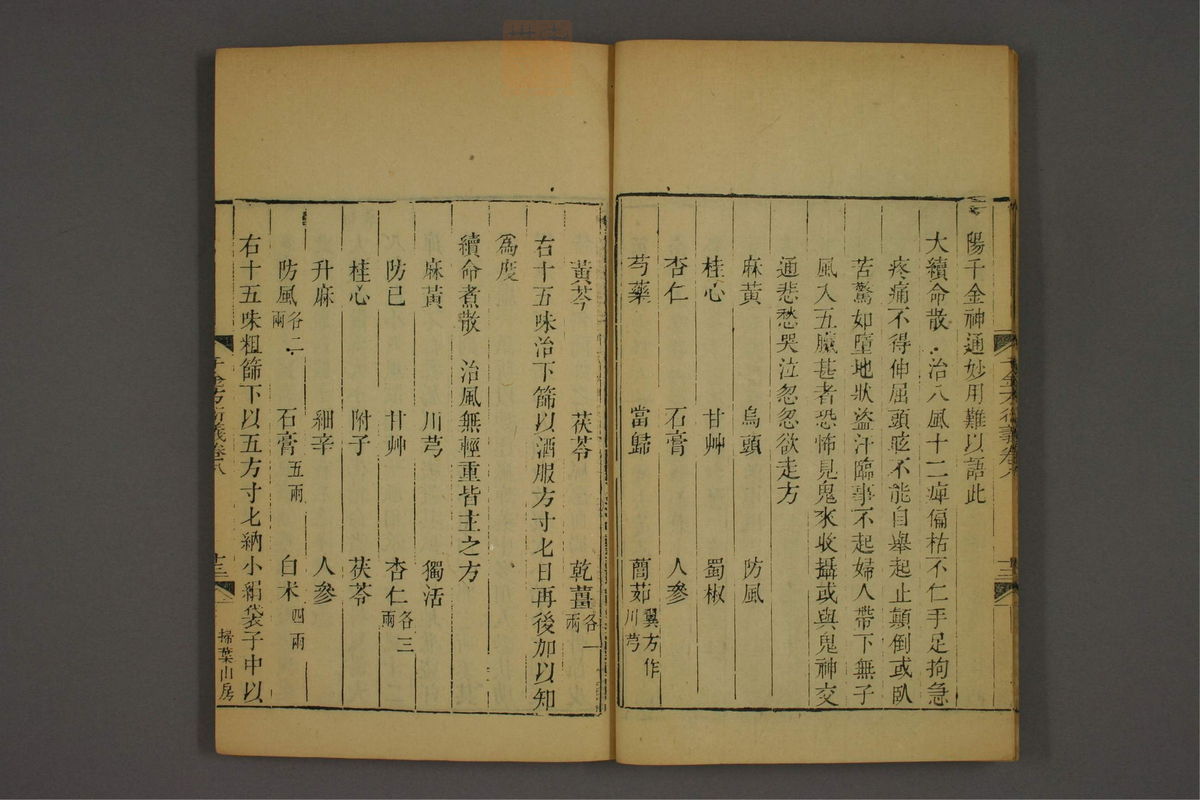 陽千金神通妙用難以語此
大續命散 治八風十二痺偏枯不仁手足拘急
疼痛不得伸屈頭眩不能自舉起止顛倒或臥
苦驚如墮地狀盜汗臨事不起婦人帶下無子
風入五臟甚者恐怖見鬼來收攝或與鬼神交
通悲愁哭泣忽忽欲走方
麻黃 烏頭 防風
桂心 甘艸 蜀椒
杏仁 石膏 人參
芍藥 當歸 䕡茹翼方作川芎
黃芩 茯苓 乾薑各一兩
右十五味治下篩以酒服方寸匕日再後加以知
為度
續命煮散 治風無輕重皆主之方
麻黃 川芎 獨活
防已 甘艸 杏仁各三兩
桂心 附子 茯苓
升麻 細辛 人參
防風各二兩 石膏五兩 白术四兩
右十五味粗篩下以五方寸匕納小絹袋子中以
千金方衍義卷八 十三
掃葉山房